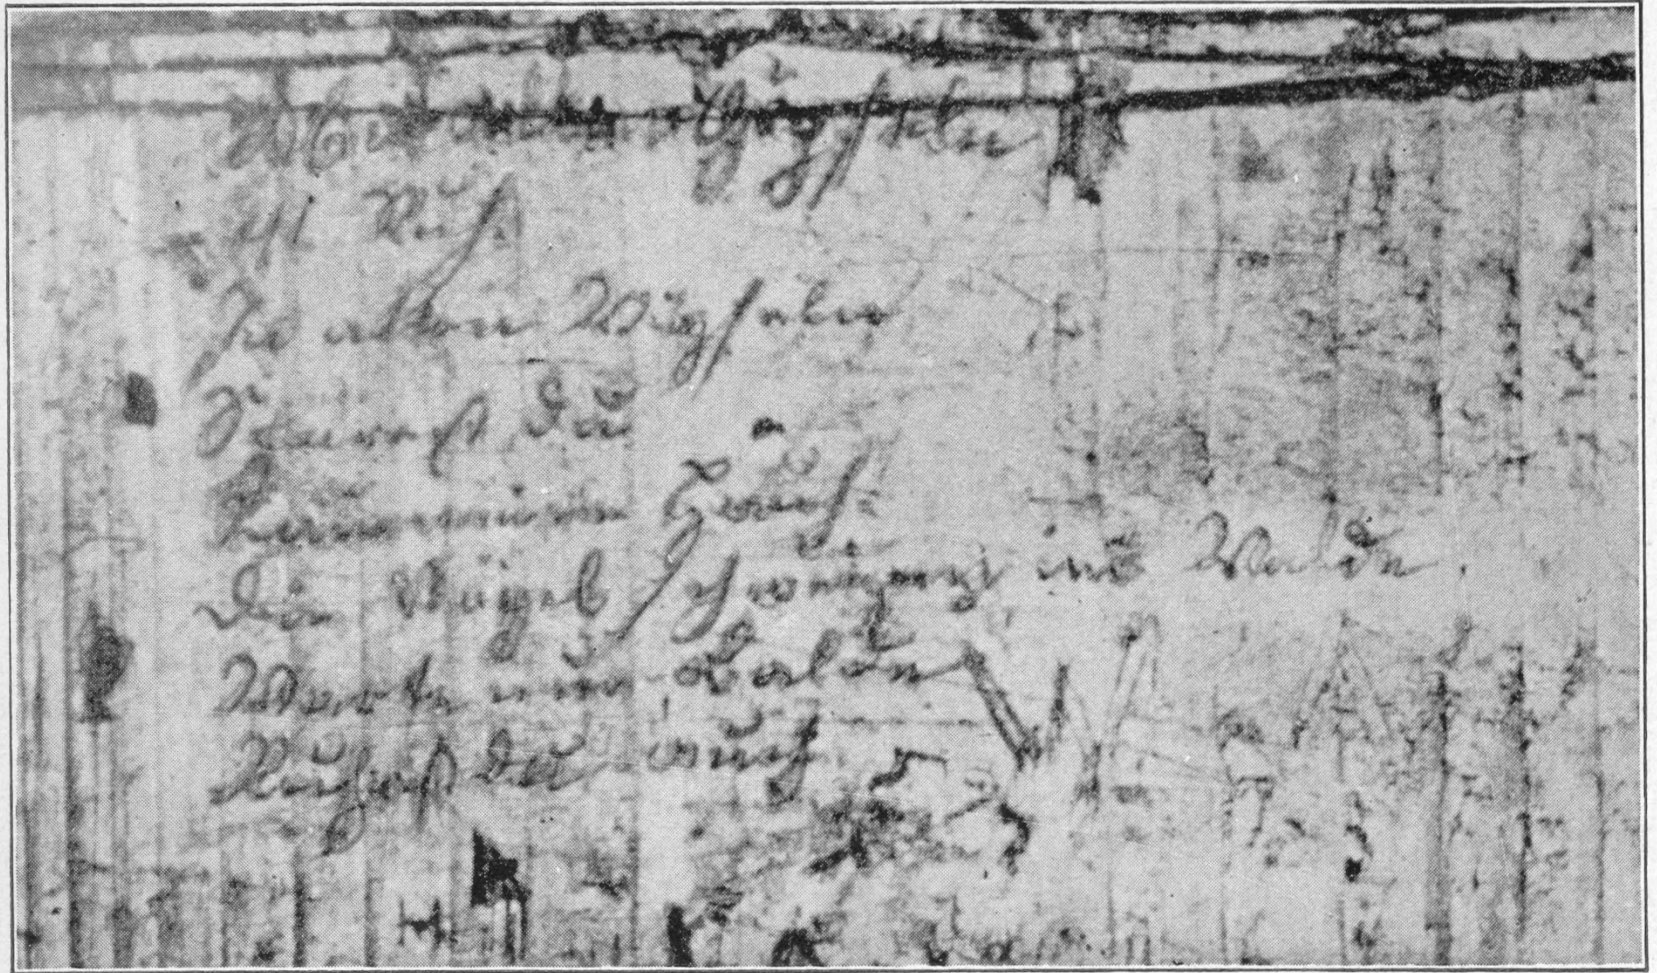 Über allen Gipfeln
ist Ruh
In allen Wipfeln
Spürest du
Kaum einen Hauch
Die Vögel schweigen im Walde.
Warte nur balde
Ruhest du auch